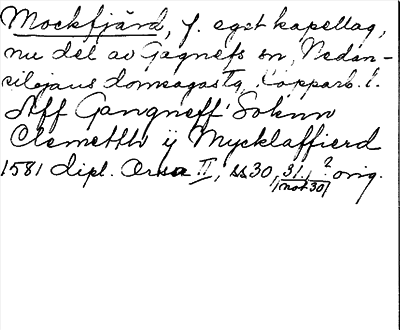 Mockfjärd, f. eget kapellag,
nu del av Gagnefs sn, Nedan-
siljans domsagas tg, Kopparb. l.
Aff Gangneff Soknn
Clemetth ij Mycklaffierd
1581 dipl. Orsa II, ss 30, 31, ? orig.
(mot 30)